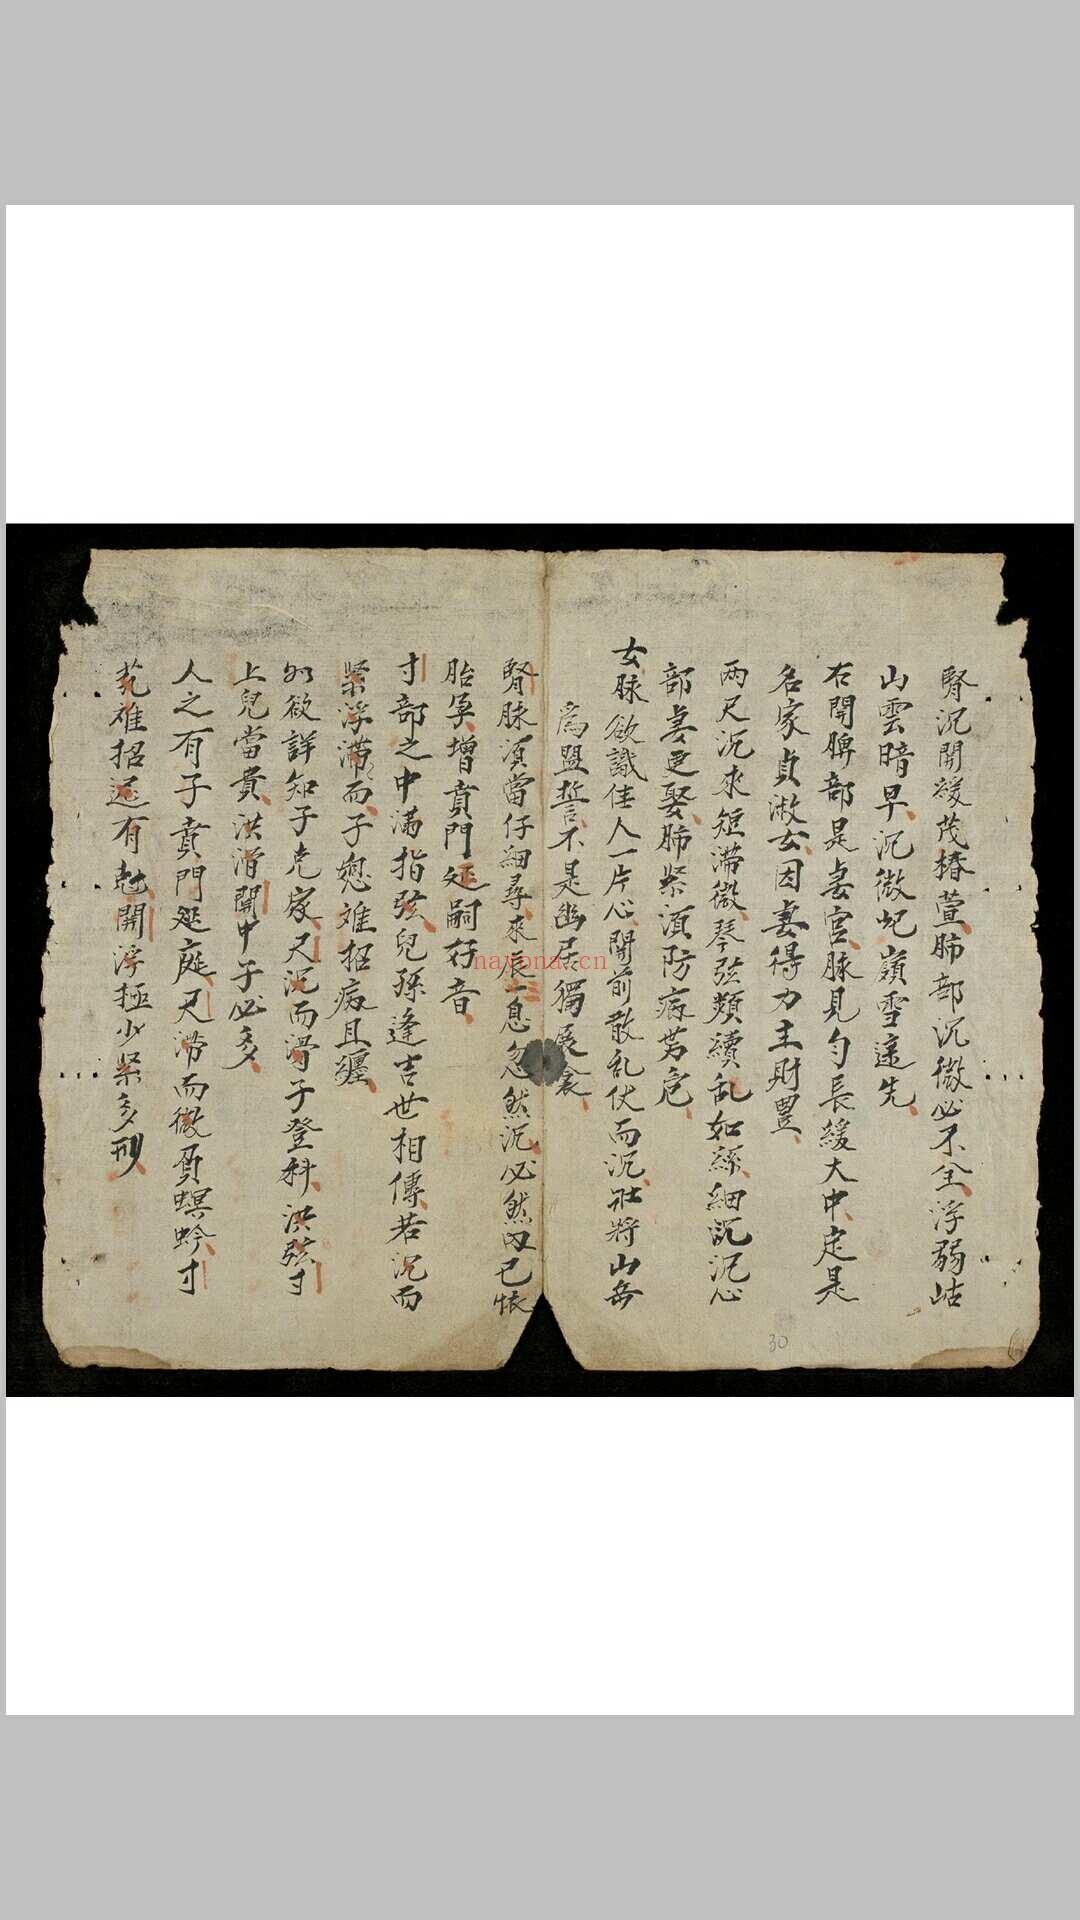 腎沉關緩茂椿萱肺部沉微必不全浮弱岵
山雲暗早沉微屺嶺雪途先
右關脾部是妻宮脉見勻長緩大中定是
名家貞淑女因妻得力主財豊
兩尺沉來短滞微琴弦頻續乱如絲細沉沉心
部妻更娶肺緊須防病苦危
女脉欲識佳人一片心關前散乱伏而沉壮將山岳
為盟誓不是幽居獨展衾
腎脉須當仔細尋來辰一息忽然沉必然內已懷
胎孕增賁門延嗣好音
寸部之中满指弦兒孫逢吉世相傳若沉而
緊浮滞而子愆难招病且纏
如欲詳知子克家尺沉而滑子登科洪弦寸
上兒當貴洪滑關中子必多
人之有子賁門延庭尺滞而微頁螟蛉寸
芤难招還有尅關浮極少緊多刑
30
nayona.cn